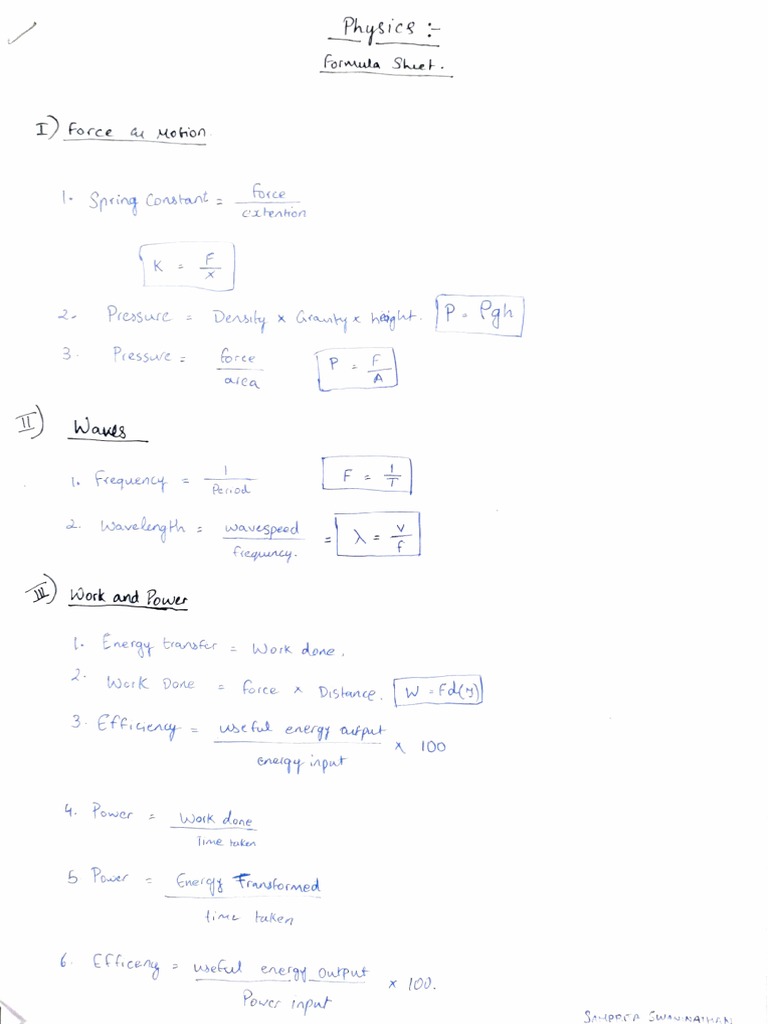 Physics :-
Formula Sheet.
I) Force and Motion
1. Spring Constant = force / extention
K = F / x
2. Pressure = Density x Gravity x height. P = ρgh
3. Pressure = force / area P = F / A
II) Waves
1. Frequency = 1 / Period F = 1 / T
2. Wavelength = wavespeed / frequency. = λ = v / f
III) Work and Power
1. Energy transfer = Work done.
2. Work Done = force x Distance. W = Fd(J)
3. Efficiency = useful energy output / energy input x 100
4. Power = Work done / Time taken
5 Power = Energy Transformed / time taken
6. Efficency = useful energy output / Power input x 100.